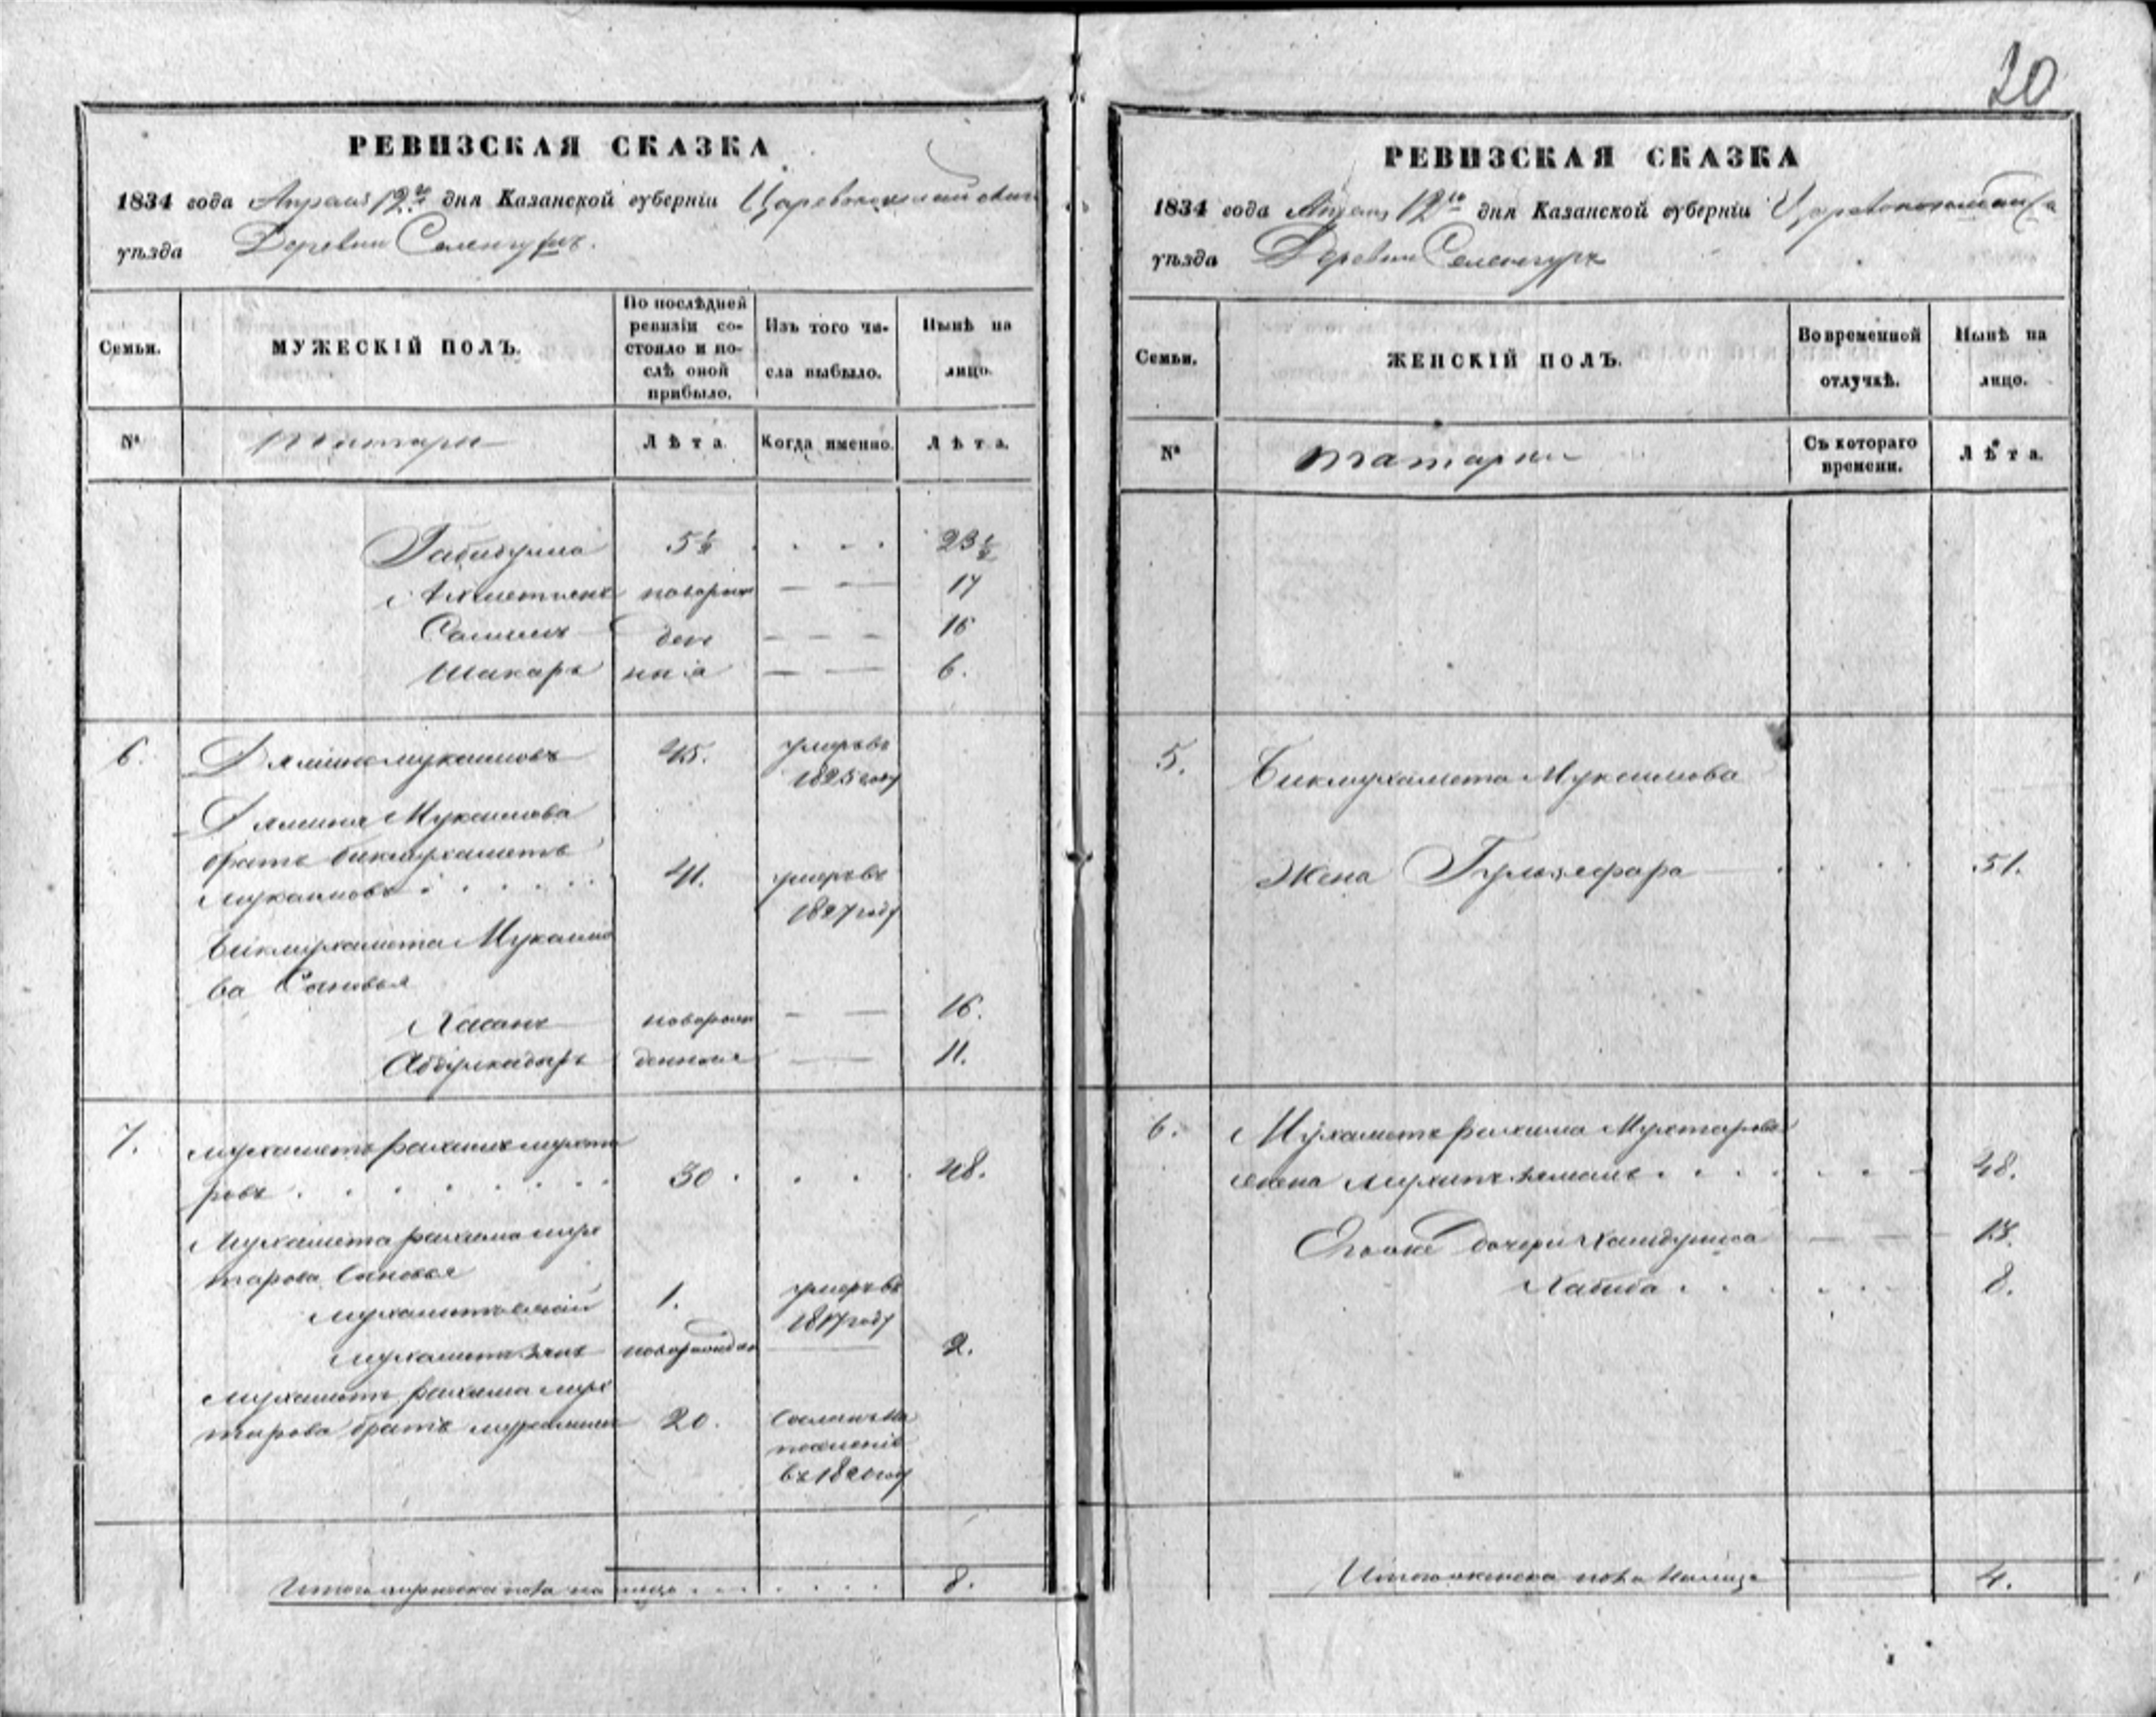 20
РЕВИЗСКАЯ СКАЗКА
1834 года Апреля 12го дня Казанской губерніи Царевококшайскаго
уѣзда Деревни Селенгуръ.
Семьи.
МУЖЕСКІЙ ПОЛЪ.
По послѣдней ревизіи состояло и послѣ оной прибыло.
Изъ того числа выбыло.
Нынѣ на лицо.
№
татары
Лѣта.
Когда именно.
Лѣта.
Габидулла 5½ 23½
Ахметзянъ новорож 17
Салихъ ден 16
Шакиръ ныя 6.
6. Дямин Мукаимовъ 45. умеръ въ
1825 году
Дямина Мукаимова
братъ Бикмухаметъ
Мукаимовъ 41. умеръ въ
1827 году
Бикмухамета Мукаимо
ва Сановья
Хасанъ новорож 16.
Абдулкадыръ денные 11.
7. Мухаметъ рахимъ мухта
ровъ 30 48.
Мухамета рахима мух
тарова Сановья
1. умеръ въ
1817 году
Мухаметзянъ новорожден 2.
Мухаметъ рахима мух
тарова братъ 20. Сосланъ на
поселеніе
въ 18 году
Итого мужеска пола на лицо 8.
РЕВИЗСКАЯ СКАЗКА
1834 года Апреля 12го дня Казанской губерніи Царевококшайска
уѣзда Деревни Селенгуръ
Семьи.
ЖЕНСКІЙ ПОЛЪ.
Во временной отлучкѣ.
Нынѣ на лицо.
№
татарки
Съ котораго времени.
Лѣта.
5. Бикмухамета Мукаимова
Жена Гульзефара 51.
6. Мухаметъ рахима Мухтарова
жена 48.
Егоже дочери 18.
Хабиба 8.
Итого женска пола налицо 4.